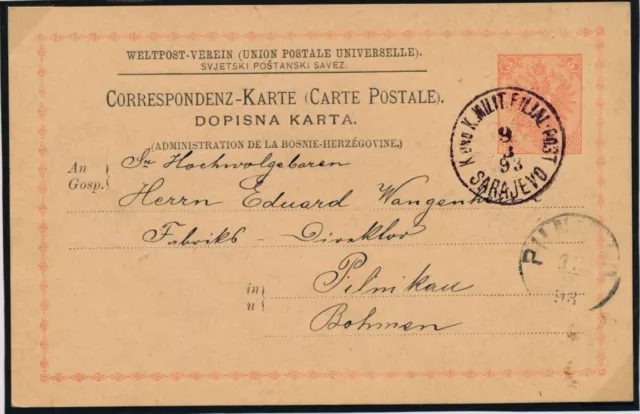 WELTPOST-VEREIN (UNION POSTALE UNIVERSELLE).
SVJETSKI POŠTANSKI SAVEZ.
CORRESPONDENZ-KARTE (CARTE POSTALE).
DOPISNA KARTA.
(ADMINISTRATION DE LA BOSNIE-HERZÉGOVINE.)
K UND K. MILIT. FILIAL-POST
9
3
93
SARAJEVO
An
Gosp.
Sr Hochwolgeboren
Herrn Eduard
Fabriks - Direktor
in
u
Pilnikau
Bohmen
93